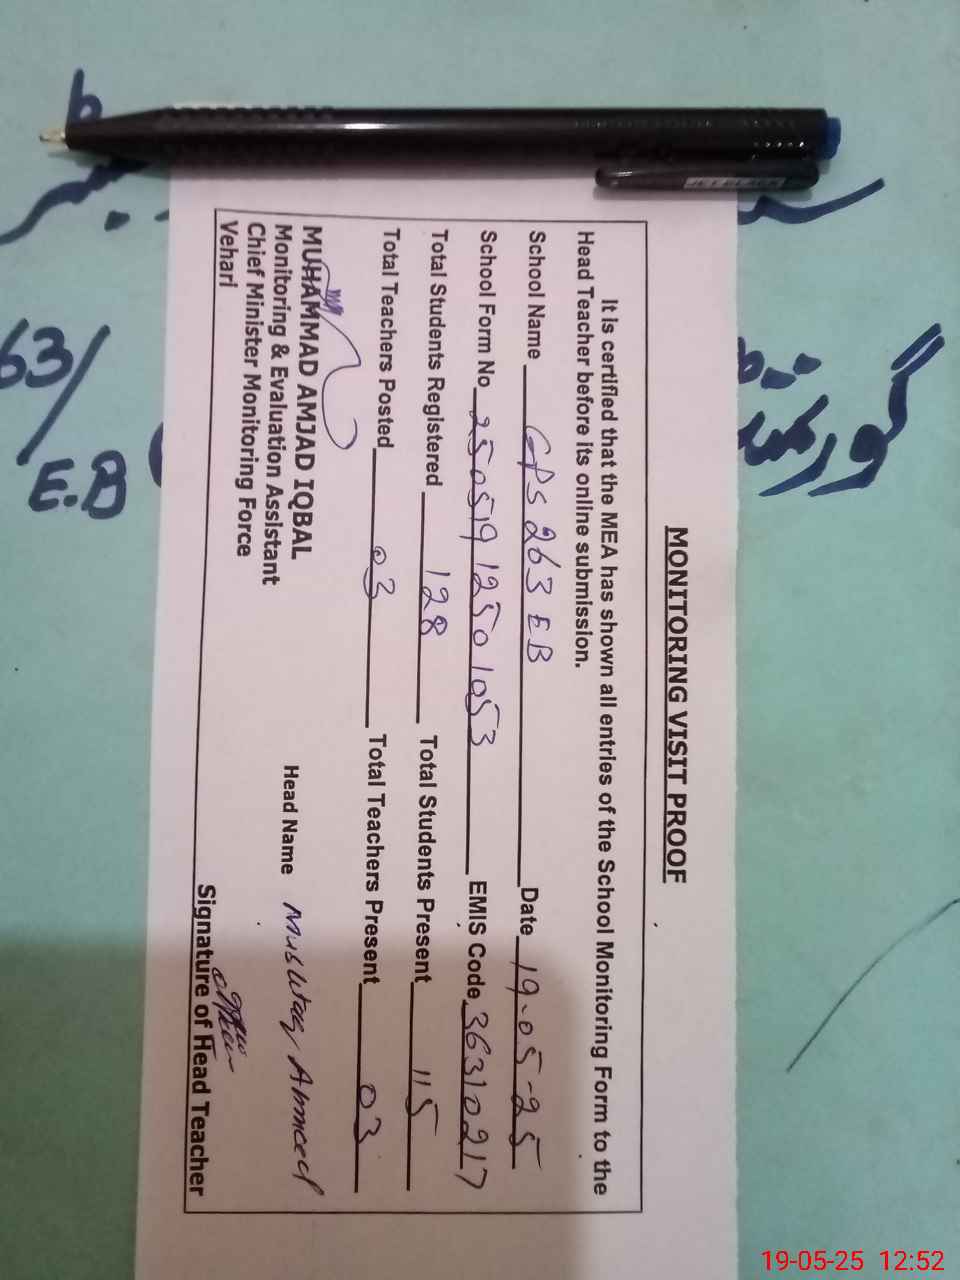 MONITORING VISIT PROOF
It is certified that the MEA has shown all entries of the School Monitoring Form to the
Head Teacher before its online submission.
School Name GPS 263 EB Date 19-05-25
School Form No 250519 1250 1053 EMIS Code 36310217
Total Students Registered 128 Total Students Present 115
Total Teachers Posted 03 Total Teachers Present 03
MUHAMMAD AMJAD IQBAL
Monitoring & Evaluation Assistant
Chief Minister Monitoring Force
Vehari
Head Name Mushtaq Ahmed
Signature of Head Teacher
JET BLACK
63/
E.B
19-05-25 12:52